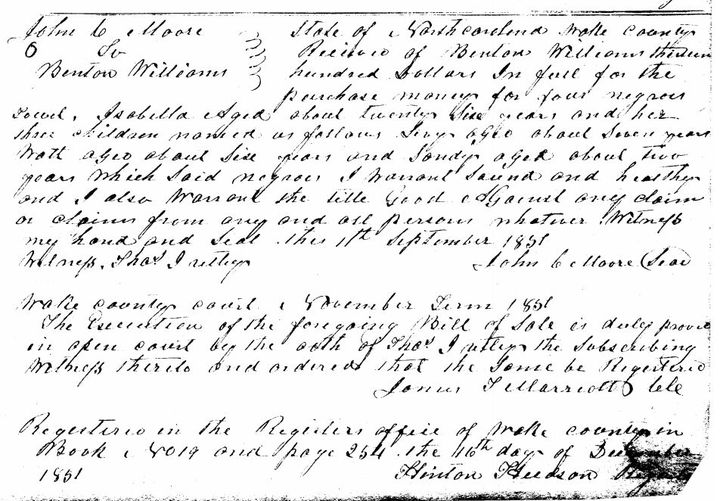 John C Moore
To
Benton Williams
State of Northcarolina Wake county
Received of Benton Williams thirteen
hundred Dollars In full for the
purchase money for four negroes
Towit, Isabella Aged about twenty Six years and her
three children named as follows Levy aged about Seven years
Watt aged about Six years and Sandy aged about two
years which Said negroes I warrant Sound and healthy
and I also Warrant the title Good Against any claim
or claims from any and all persons whatever Witness
my hand and Seal this 1th September 1851
Witness, Thos J utley
John C Moore (Seal
Wake county court November Term 1851
The Execution of the foregoing Bill of Sale is duly proved
in open court by the oath of Thos J utley the Subscribing
Witness thereto and ordered that the Same be Registered
James T Marriott Clk
Registered in the Registers office of Wake county in
Book No 19 and page 254 the 16th day of December
1851
Hinton Hudson